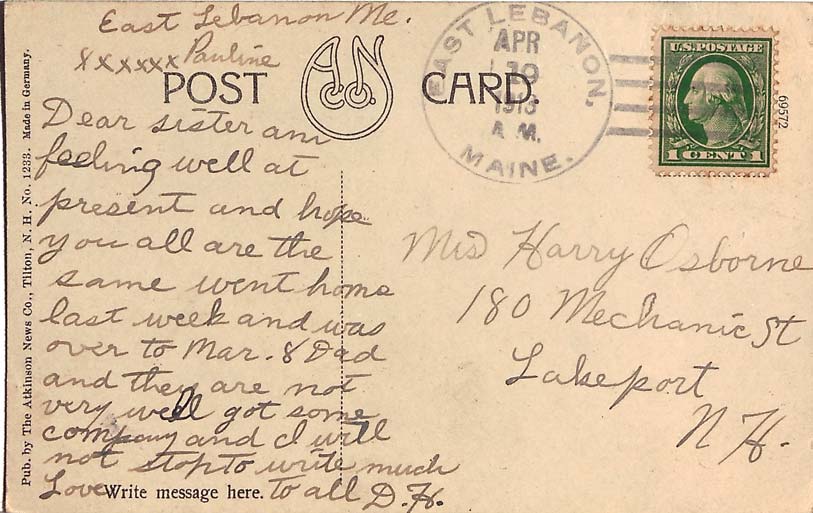 East Lebanon Me.
xxxxxx Pauline
POST CARD.
A.N.
Co.
Dear sister am
feeling well at
present and hope
you all are the
same went home
last week and was
over to Mar. & Dad
and they are not
very well got some
company and I will
not stop to write much
Love to all D.H.
Write message here.
Pub. by The Atkinson News Co., Tilton, N. H. No. 1233. Made in Germany.
EAST LEBANON,
APR
19
1913
A M.
MAINE.
U.S. POSTAGE
1 CENT 1
69572
Mrs Harry Osborne
180 Mechanic St
Lakeport
N H.